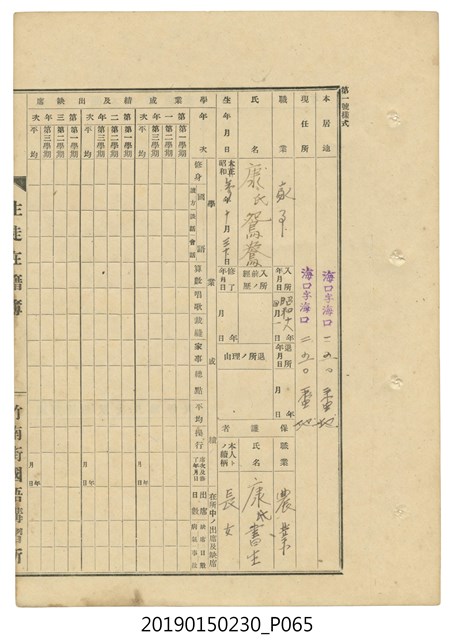 第一號樣式
本居地 海口字海口 二五〇番地
現住所 海口字海口 二五〇番地
職業 家事
氏名 康氏鴛鴦
生年月日 大正 昭和 年十月三十日
入所年月日 昭和十八年四月一日
入所前ノ經歷
修了年月日 年 月 日
退所年月日 年 月 日
退所ノ理由
保護者
職業 農業
氏名 康氏書生
本人トノ續柄 長女
學業成績及出缺席
學年次 學業成績 在所中ノ出席及缺席
修身 國語 讀方 談話 會話 算數 唱歌 裁縫 家事 總點 平均 操行
出席日數 缺席日數 病氣 事故
一年次 第一學期 第二學期 第三學期 平均
二年次 第一學期 第二學期 第三學期 平均
三年次 第一學期 第二學期 第三學期 平均
生徒在籍簿
竹南街國語講習所
20190150230_P065